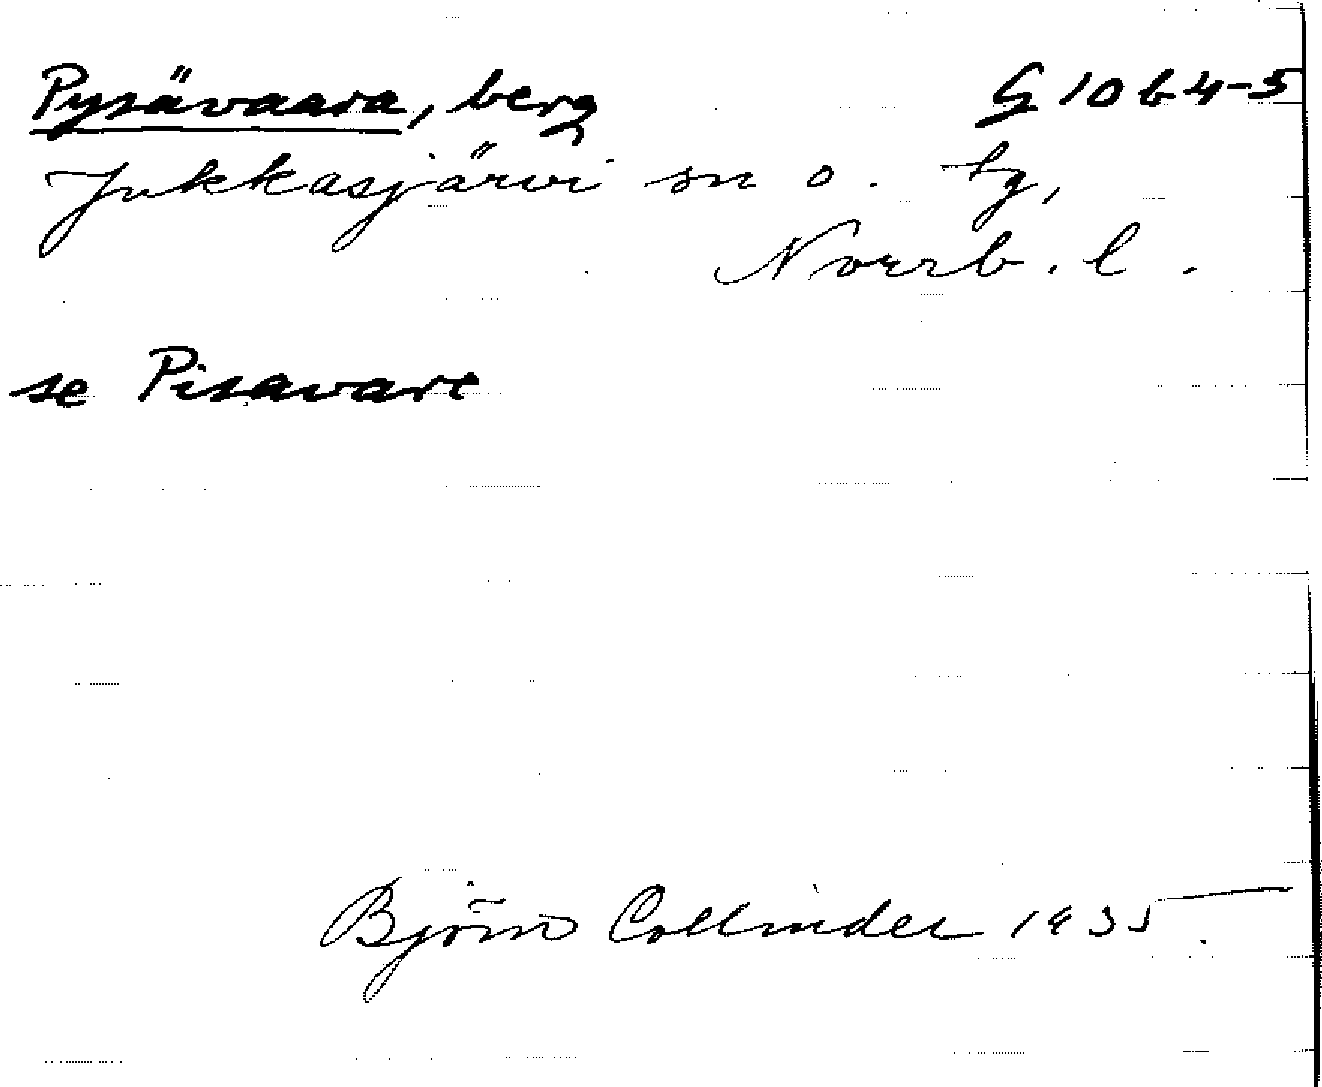 Pysävaara, berg G 10 b 4-5
Jukkasjärvi sn o. tg,
Norrb. l.
se Pisavare
Björn Collinder 1935